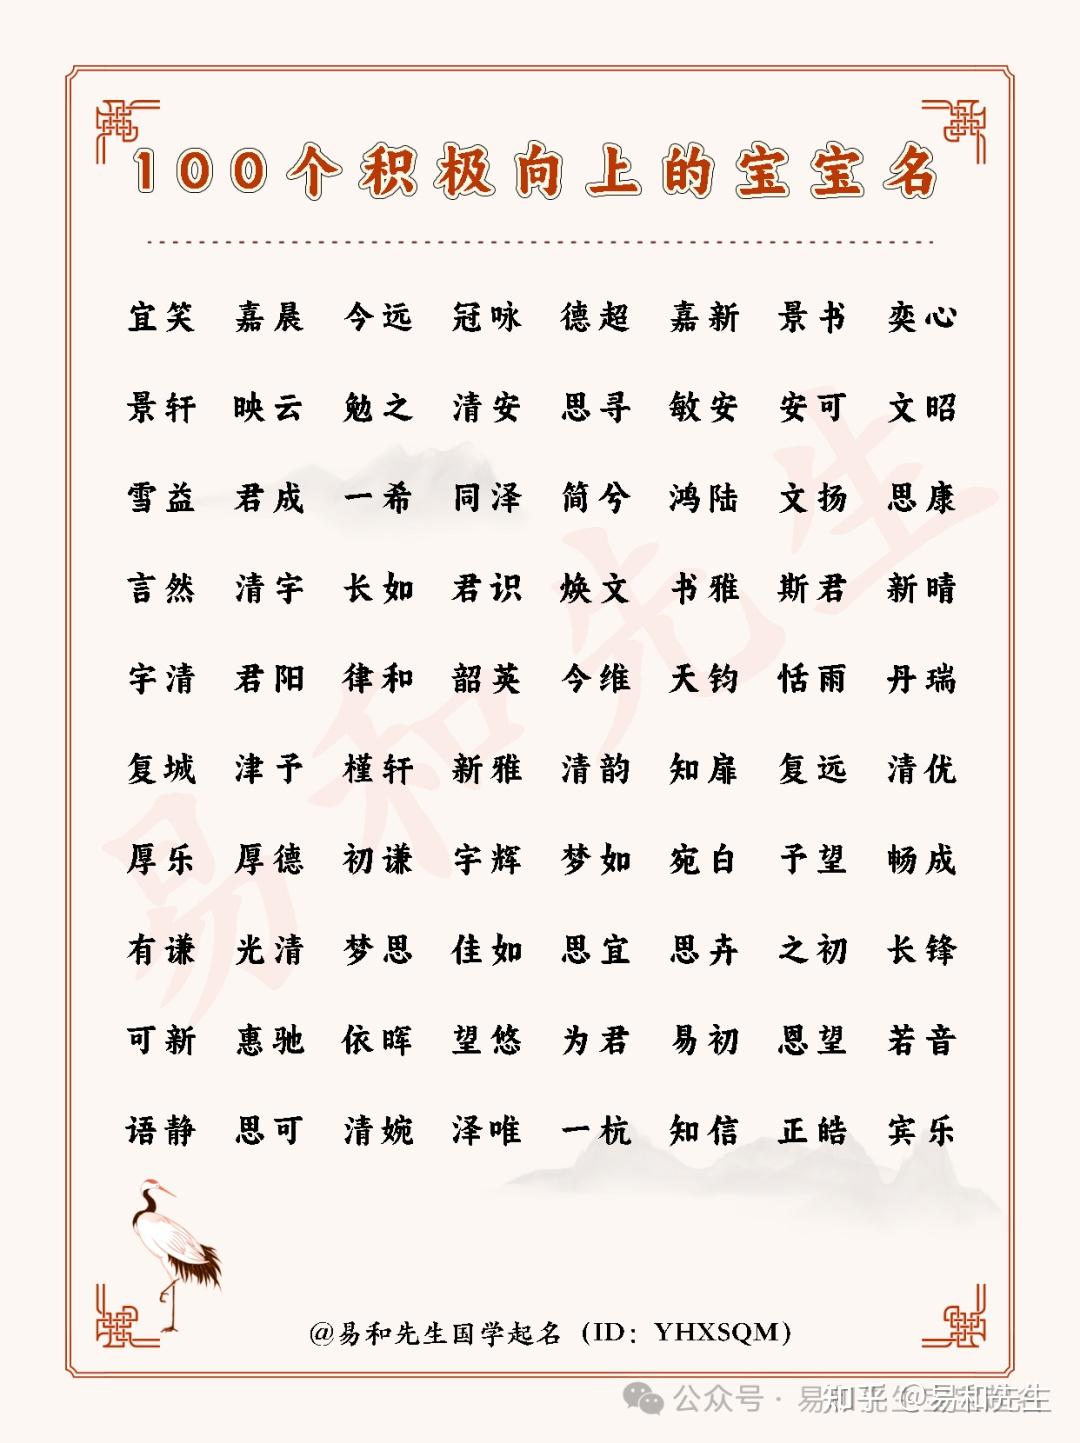 100个积极向上的宝宝名
宜笑 嘉晨 今远 冠咏 德超 嘉新 景书 奕心
景轩 映云 勉之 清安 思寻 敏安 安可 文昭
雪益 君成 一希 同泽 简兮 鸿陆 文扬 思康
言然 清宇 长如 君识 焕文 书雅 斯君 新晴
宇清 君阳 律和 韶英 今维 天钧 恬雨 丹瑞
复城 津予 槿轩 新雅 清韵 知扉 复远 清优
厚乐 厚德 初谦 宇辉 梦如 宛白 予望 畅成
有谦 光清 梦思 佳如 思宜 思卉 之初 长锋
可新 惠驰 依晖 望悠 为君 易初 恩望 若音
语静 思可 清婉 泽唯 一杭 知信 正皓 宾乐
易和先生
@易和先生国学起名（ID：YHXSQM）
公众号·易
知乎 @易和先生